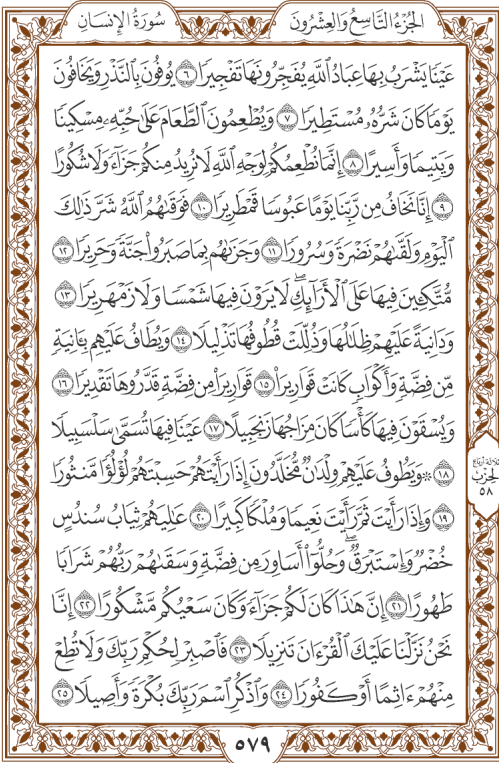 سُورَةُ الإِنسَانِ
الجُزْءُ التَّاسِعُ وَالعِشْرُونَ
عَيْنًا يَشْرَبُ بِهَا عِبَادُ ٱللَّهِ يُفَجِّرُونَهَا تَفْجِيرًا ٦ يُوفُونَ بِٱلنَّذْرِ وَيَخَافُونَ
يَوْمًا كَانَ شَرُّهُۥ مُسْتَطِيرًا ٧ وَيُطْعِمُونَ ٱلطَّعَامَ عَلَىٰ حُبِّهِۦ مِسْكِينًا
وَيَتِيمًا وَأَسِيرًا ٨ إِنَّمَا نُطْعِمُكُمْ لِوَجْهِ ٱللَّهِ لَا نُرِيدُ مِنكُمْ جَزَآءً وَلَا شُكُورًا
٩ إِنَّا نَخَافُ مِن رَّبِّنَا يَوْمًا عَبُوسًا قَمْطَرِيرًا ١٠ فَوَقَىٰهُمُ ٱللَّهُ شَرَّ ذَٰلِكَ
ٱلْيَوْمِ وَلَقَّىٰهُمْ نَضْرَةً وَسُرُورًا ١١ وَجَزَىٰهُم بِمَا صَبَرُوا۟ جَنَّةً وَحَرِيرًا ١٢
مُّتَّكِـِٔينَ فِيهَا عَلَى ٱلْأَرَآئِكِ ۖ لَا يَرَوْنَ فِيهَا شَمْسًا وَلَا زَمْهَرِيرًا ١٣
وَدَانِيَةً عَلَيْهِمْ ظِلَٰلُهَا وَذُلِّلَتْ قُطُوفُهَا تَذْلِيلًا ١٤ وَيُطَافُ عَلَيْهِم بِـَٔانِيَةٍ
مِّن فِضَّةٍ وَأَكْوَابٍ كَانَتْ قَوَارِيرَا۠ ١٥ قَوَارِيرَا۟ مِن فِضَّةٍ قَدَّرُوهَا تَقْدِيرًا ١٦
وَيُسْقَوْنَ فِيهَا كَأْسًا كَانَ مِزَاجُهَا زَنجَبِيلًا ١٧ عَيْنًا فِيهَا تُسَمَّىٰ سَلْسَبِيلًا
١٨ ۞ وَيَطُوفُ عَلَيْهِمْ وِلْدَٰنٌ مُّخَلَّدُونَ إِذَا رَأَيْتَهُمْ حَسِبْتَهُمْ لُؤْلُؤًا مَّنثُورًا
١٩ وَإِذَا رَأَيْتَ ثَمَّ رَأَيْتَ نَعِيمًا وَمُلْكًا كَبِيرًا ٢٠ عَٰلِيَهُمْ ثِيَابُ سُندُسٍ
خُضْرٌ وَإِسْتَبْرَقٌ ۖ وَحُلُّوٓا۟ أَسَاوِرَ مِن فِضَّةٍ وَسَقَىٰهُمْ رَبُّهُمْ شَرَابًا
طَهُورًا ٢١ إِنَّ هَٰذَا كَانَ لَكُمْ جَزَآءً وَكَانَ سَعْيُكُم مَّشْكُورًا ٢٢ إِنَّا
نَحْنُ نَزَّلْنَا عَلَيْكَ ٱلْقُرْءَانَ تَنزِيلًا ٢٣ فَٱصْبِرْ لِحُكْمِ رَبِّكَ وَلَا تُطِعْ
مِنْهُمْ ءَاثِمًا أَوْ كَفُورًا ٢٤ وَٱذْكُرِ ٱسْمَ رَبِّكَ بُكْرَةً وَأَصِيلًا ٢٥
ثلاثة أرباع
الحِزْب
٥٨
٥٧٩